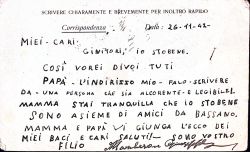 SCRIVERE CHIARAMENTE E BREVEMENTE PER INOLTRO RAPIDO
Corrispondenza Data: 26-11-42-
MIEI-CARI
GENITORI, IO STOBENE.
COSÍ VOREI DIVOI TUTI
PAPÁ-L'INDIRISSO MIO-FALO-SCRIVERE
DA-UNA PERSONA CHE SIA ALCORENTE-E LEGIBILE.
MAMMA STAI TRANQUILLA CHE IO STOBENE
SONO ASIEME DI AMICI DA BASSANO,
MAMMA E PAPÁ VI GIUNGA L'ECCO DEI
MIEI BACI E CARI SALUTI! SONO VOSTRO
FILIO